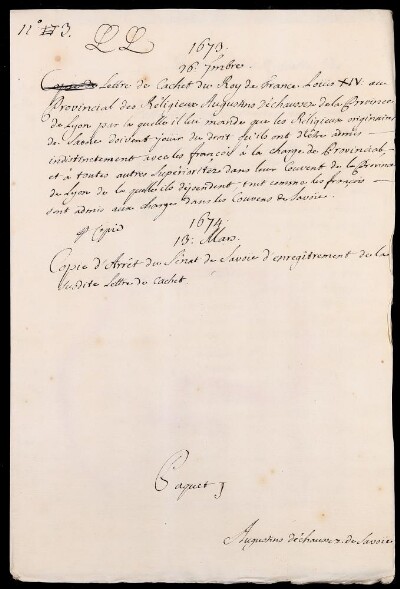 n° 3.
LL
1673
96 7mbres.
Lettre de Cachet du Roy de France Louis XIV. au
Provincial des Réligieux Augustins déchaussez de la Province
de Lyon par la quelle il lui mande que les Religieux originaires
de Savoie doivent jouir du droit qu'ils ont d'être admis
indistinctement avec les françois à la charge de Provincial
et à toutes autres Supérioritez dans leur Couvent de la Province
de Lyon de la quelle ils dépendent tout comme les françois
sont admis aux charges dans les Couvens de Savoie.
Copie
1674.
13. Mars.
Copie d'Arrêt du Sénat de Savoie d'enregitrement de la
susdite Lettre de Cachet
Paquet
Augustins déchaussez. de Savoie